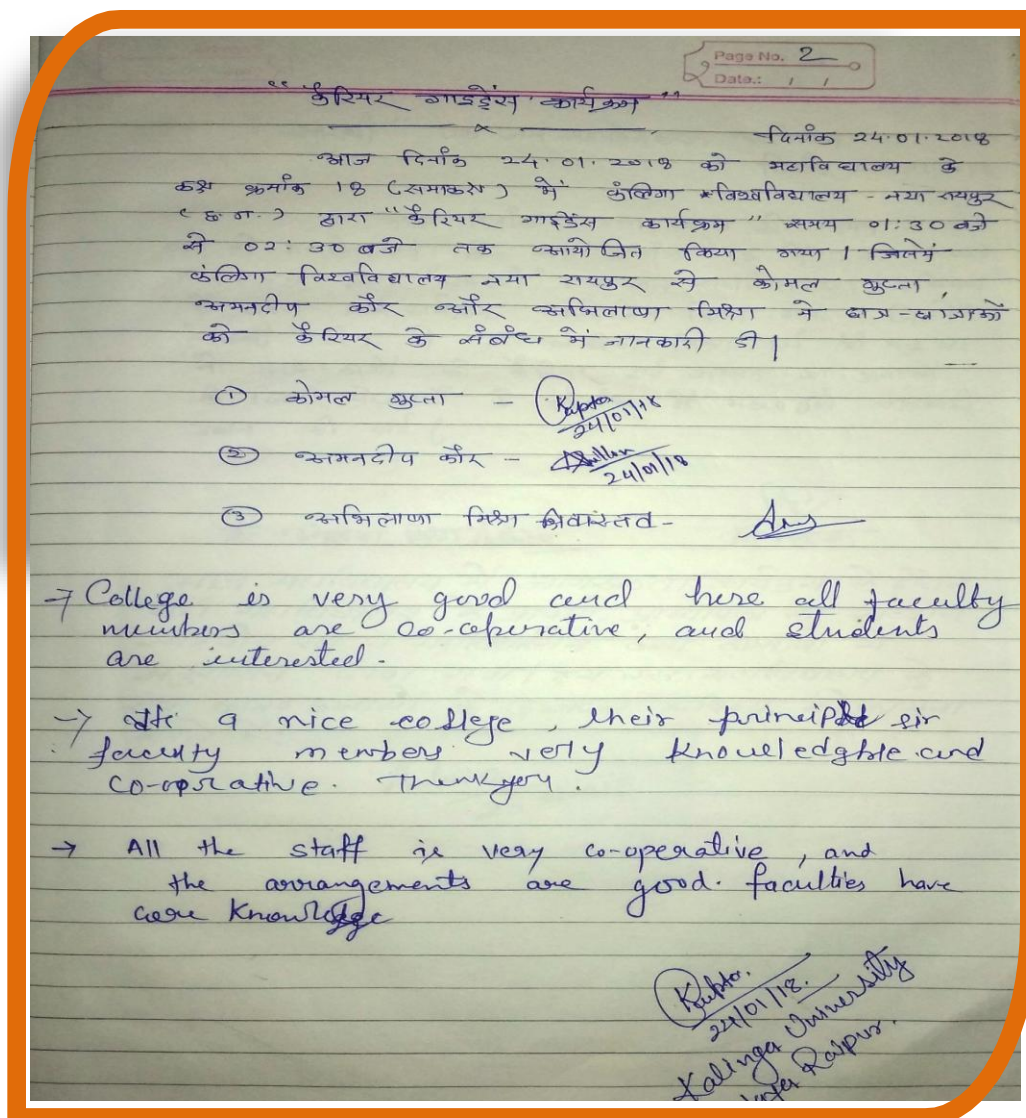 Page No. 2
Date.: / /
"कैरियर गाइडेंस कार्यक्रम"
दिनांक 24.01.2018
आज दिनांक 24.01.2018 को महाविद्यालय के
कक्ष क्रमांक 18 (सभाकक्ष) में कंलिगा विश्वविद्यालय - नया रायपुर
(छ.ग.) द्वारा "कैरियर गाइडेंस कार्यक्रम" समय 01:30 बजे
से 02:30 बजे तक आयोजित किया गया। जिसमें
कंलिगा विश्वविद्यालय नया रायपुर से कोमल गुप्ता,
अमनदीप कौर और अभिलाषा मिश्रा ने छात्र-छात्राओं
को कैरियर के संबंध में जानकारी दी।
① कोमल गुप्ता - Gupta
24/01/18
② अमनदीप कौर -
24/01/18
③ अभिलाषा मिश्रा श्रीवास्तव -
→ College is very good and here all faculty
members are co-operative, and students
are interested.
→ a nice college, their sir
faculty members very knowledgble and
co-oprative. Thankyou.
→ All the staff is very co-operative, and
the arrangements are good. faculties have
core knowledge
Gupta.
24/01/18.
Kalinga University
Naya Raipur.